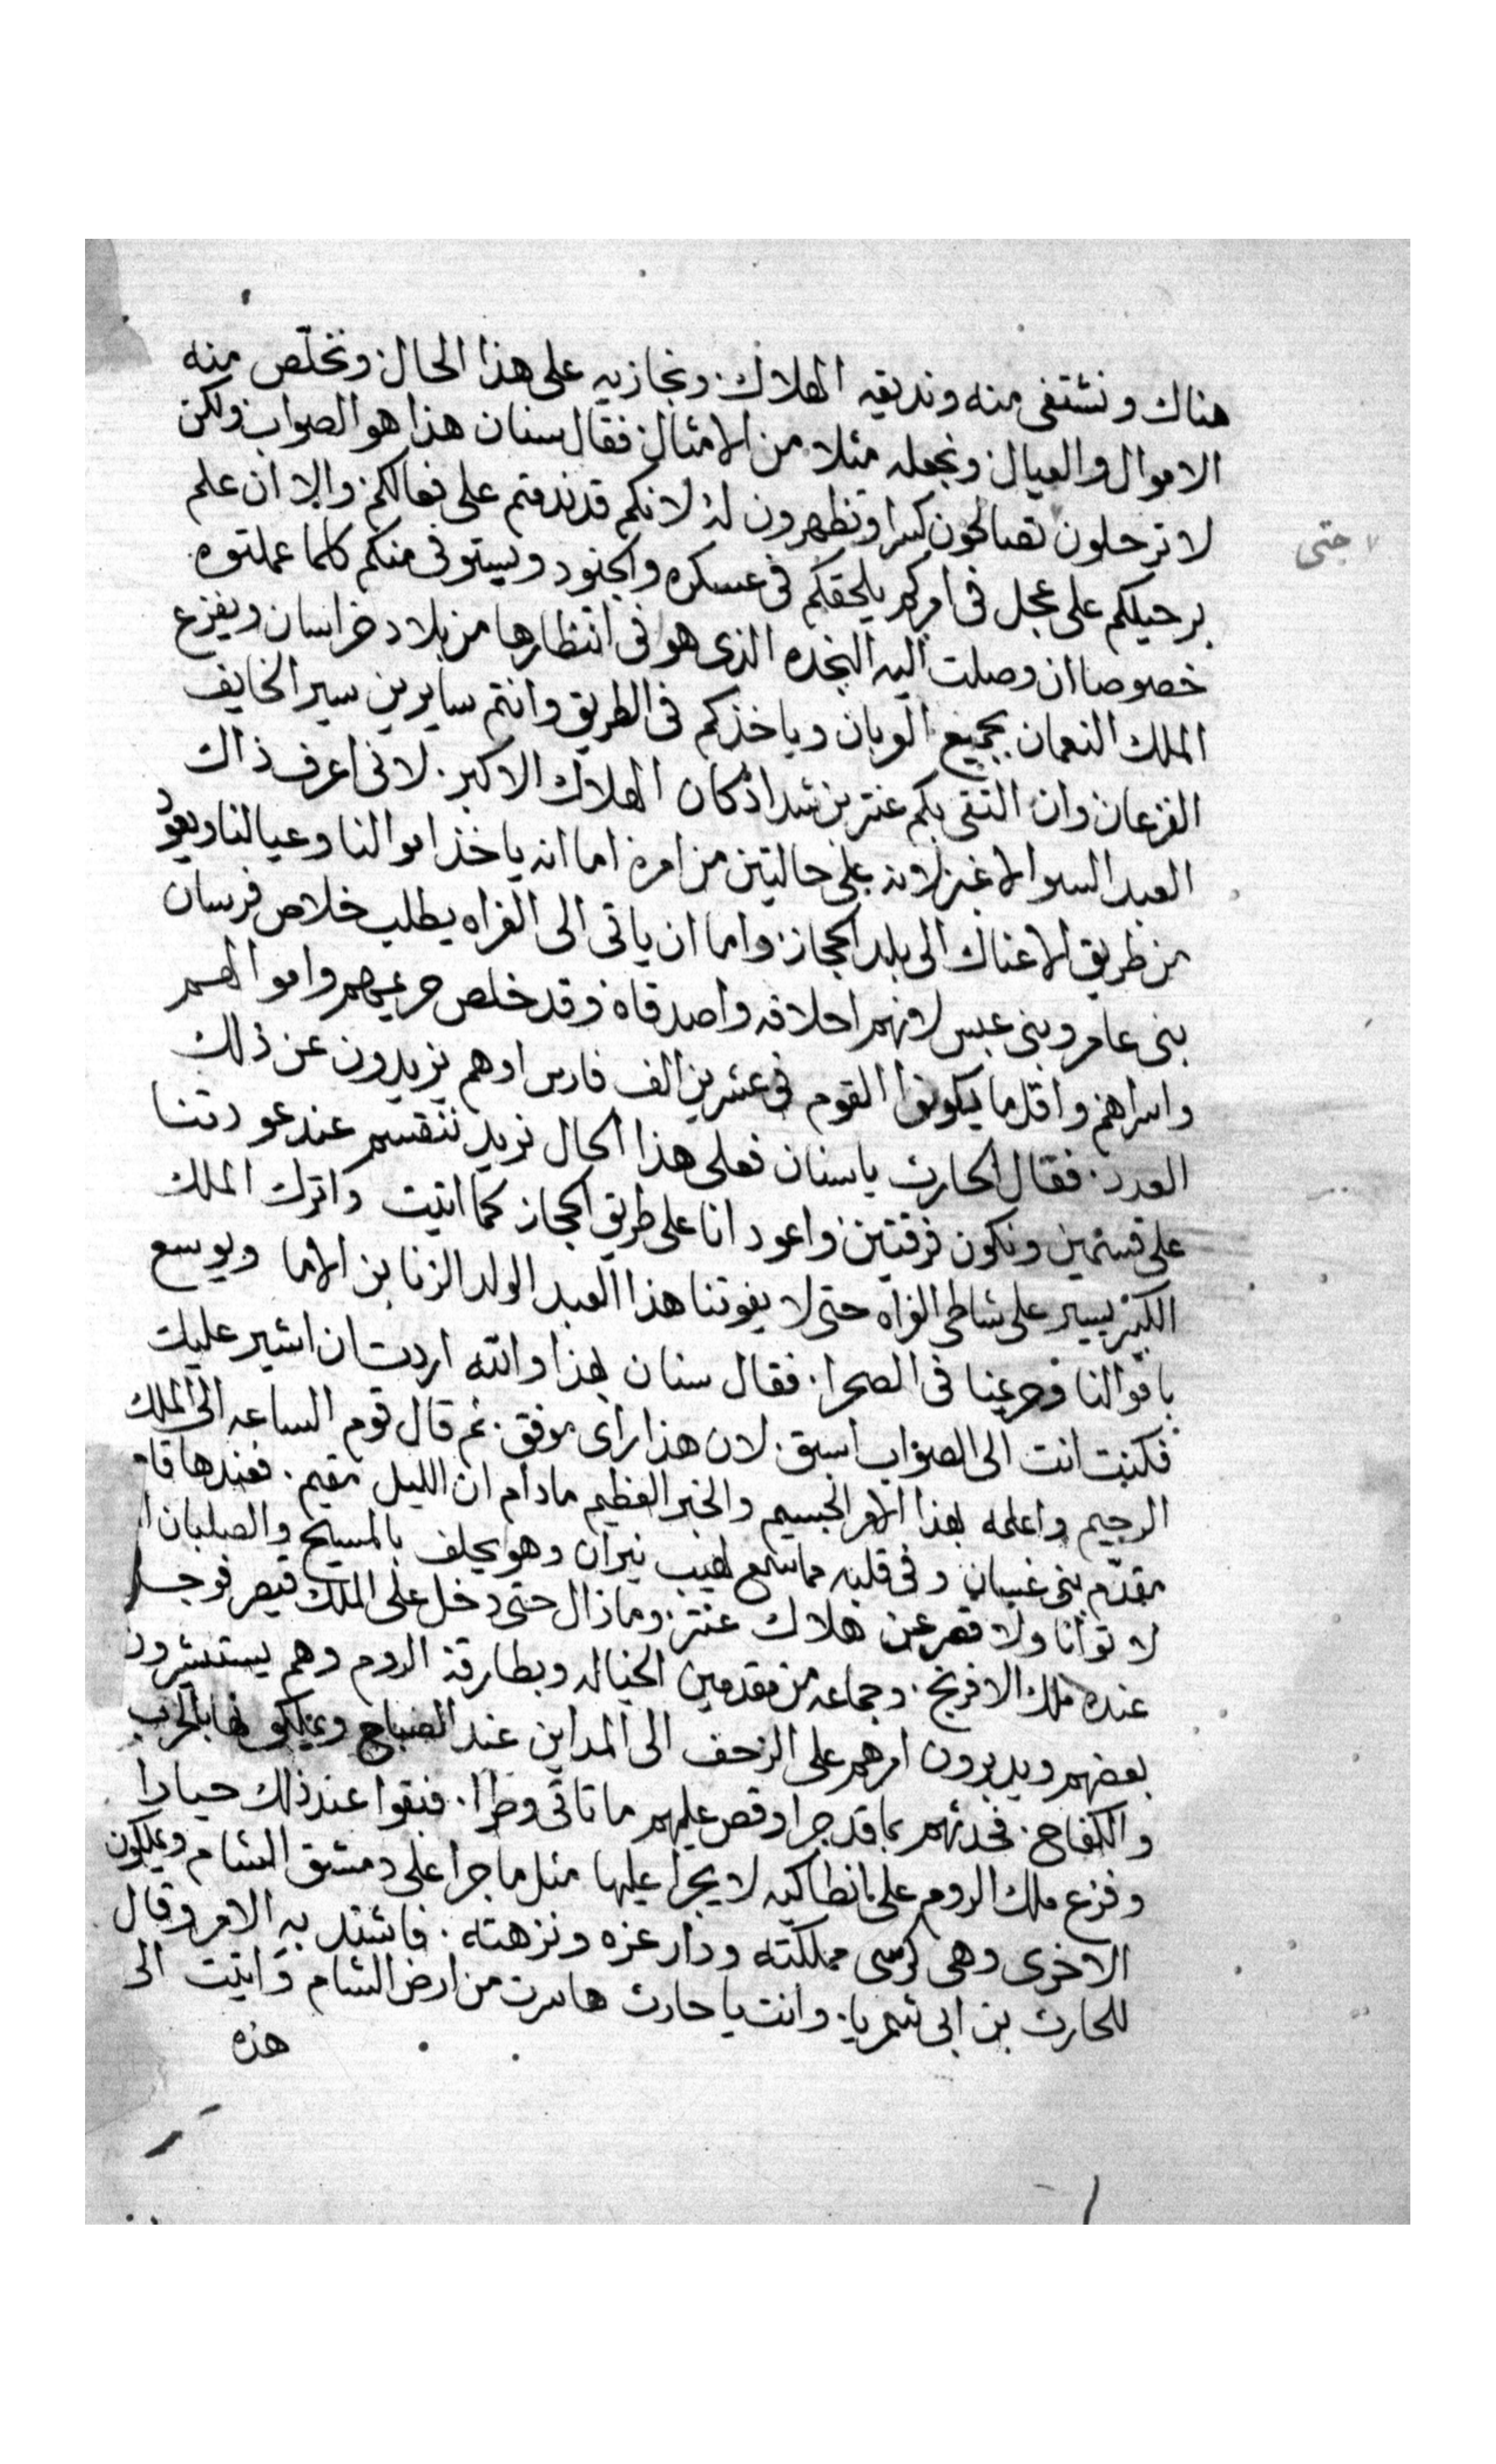 هناك ونشتفى منه ونديقه الهلاك. ونجازيه على هذا الحال. ونخلّص منه
الاموال والعيال. ونجعله مثلا من الامثال. فقال سنان هذا هو الصواب. ولكن
لا ترحلون تصالحون كسرا وتظهرون له لانكم قد ندمتم على فعالكم. والا ان علم
حتى
برحيلكم على عجل فى امركم يلحقكم فى عسكره والجنود ويستوفى منكم كلما عملتوه.
خصوصا ان وصلت اليه النجده الذى هو فى انتظارها من بلاد خراسان ويفزع
الملك النعمان بجميع العربان وياخذكم فى الطريق وانتم سايرين سير الخايف
الفزعان وان التقى بكم عنتر بن شداد كان الهلاك الاكبر. لانى اعرف ذاك
العبد السو الاغبر لانه على حالتين من امره اما انه ياخذ اموالنا وعيالنا ويعود
من طريق الاعناك الى بلد الحجاز. واما ان ياتى الى الفراه يطلب خلاص فرسان
بنى عامر وبنى عبس لانهم احلافه واصدقاه وقد خلص حريمهم واموالهم
واسراهم واقل ما يكونوا القوم فى عشرين الف فارس اوهم يزيدون عن ذلك
العدد. فقال الحارث ياسنان فعلى هذا الحال نريد ننقسم عند عودتنا
على قسمين ونكون فرقتين واعود انا على طريق الحجاز كما اتيت واترك الملك
الكبير يسير على شاطى الفراه حتى لا يفوتنا هذا العبد الولد الزنا بن الاما ويوسع
باموالنا وحريمنا فى الصحرا. فقال سنان هذا والله اردت ان اشير عليك
فكنت انت الى الصواب اسبق. لان هذا راى موفق. ثم قال قوم الساعه الى الملك
الرحيم واعلمه بهذا الامر الجسيم والخبر العظيم مادام ان الليل مقيم. فعندها قام
مقدّم بنى غسان وفى قلبه مما سمع لهيب نيران وهو يحلف بالمسيح والصلبان
لا توانا ولا قصر عن هلاك عنتر. وما زال حتى دخل على الملك قيصر فوجد
عنده ملك الافرنج. وجماعه من مقدمين الخياله وبطارقة الروم وهم يستشرون
بعضهم ويدبرون امرهم على الزحف الى المداين عند الصباح ويملكوها بالحرب
والكفاح. فحدثهم بما قد جرا وقص عليهم ما تاتّى وطرا. فبقوا عند ذلك حيارا
وفزع ملك الروم على انطاكيه لا يجرا عليها مثل ما جرا على دمشق الشام ويملكون
الاخرى وهى كرسى مملكته ودار عزه ونزهته. فاشتد به الامر وقال
للحارث بن ابى شمر يا. وانت يا حارث ها سرت من ارض الشام واتيت الى
هذه